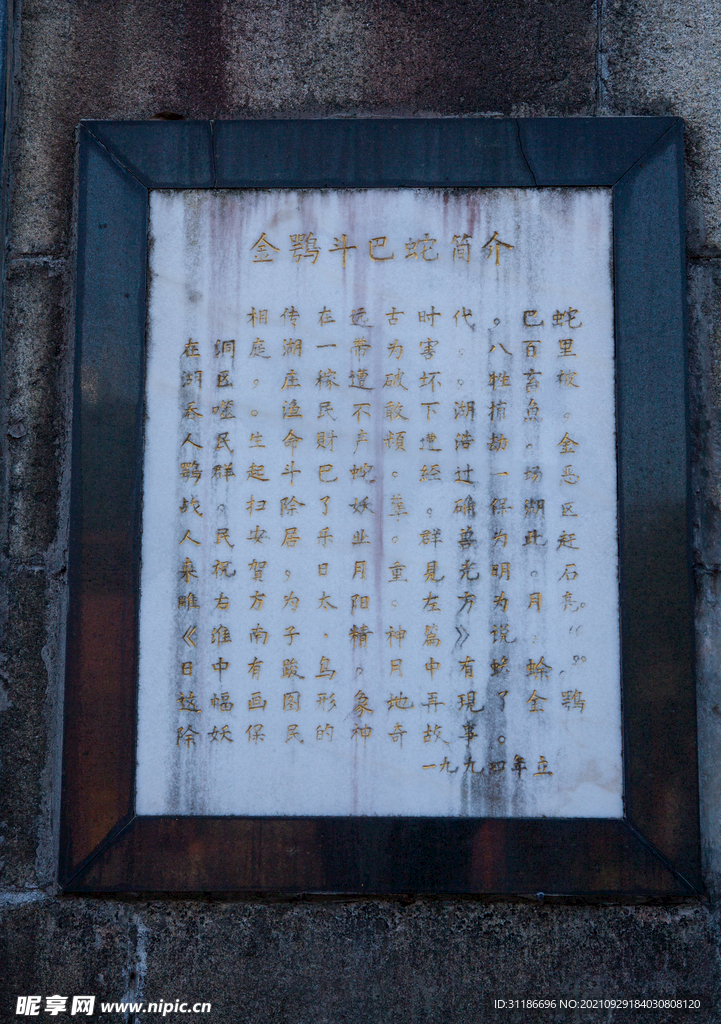 金鹗斗巴蛇简介
相传在远古时代，巴蛇
在洞庭湖一带为害，八百里
湖区，庄稼遭破坏。牲畜被
吞噬。渔民不敢下湖捕鱼。
人民生命财产频遭浩劫。金
鹗群起斗巴蛇。经过一场恶
战。扫除了妖孽。确保湖区
人民安居乐业。群喜为此赶
来祝贺，日月重见光明。石
雕右方为太阳。左方为月亮。
《淮南子·精神篇》说：“
日中有踆鸟。月中有蟾蜍。”
这幅画图形象地再现了金鹗
除妖保民的神奇故事。
一九九四年立
昵享网 www.nipic.cn
ID:31186696 NO:20210929184030808120